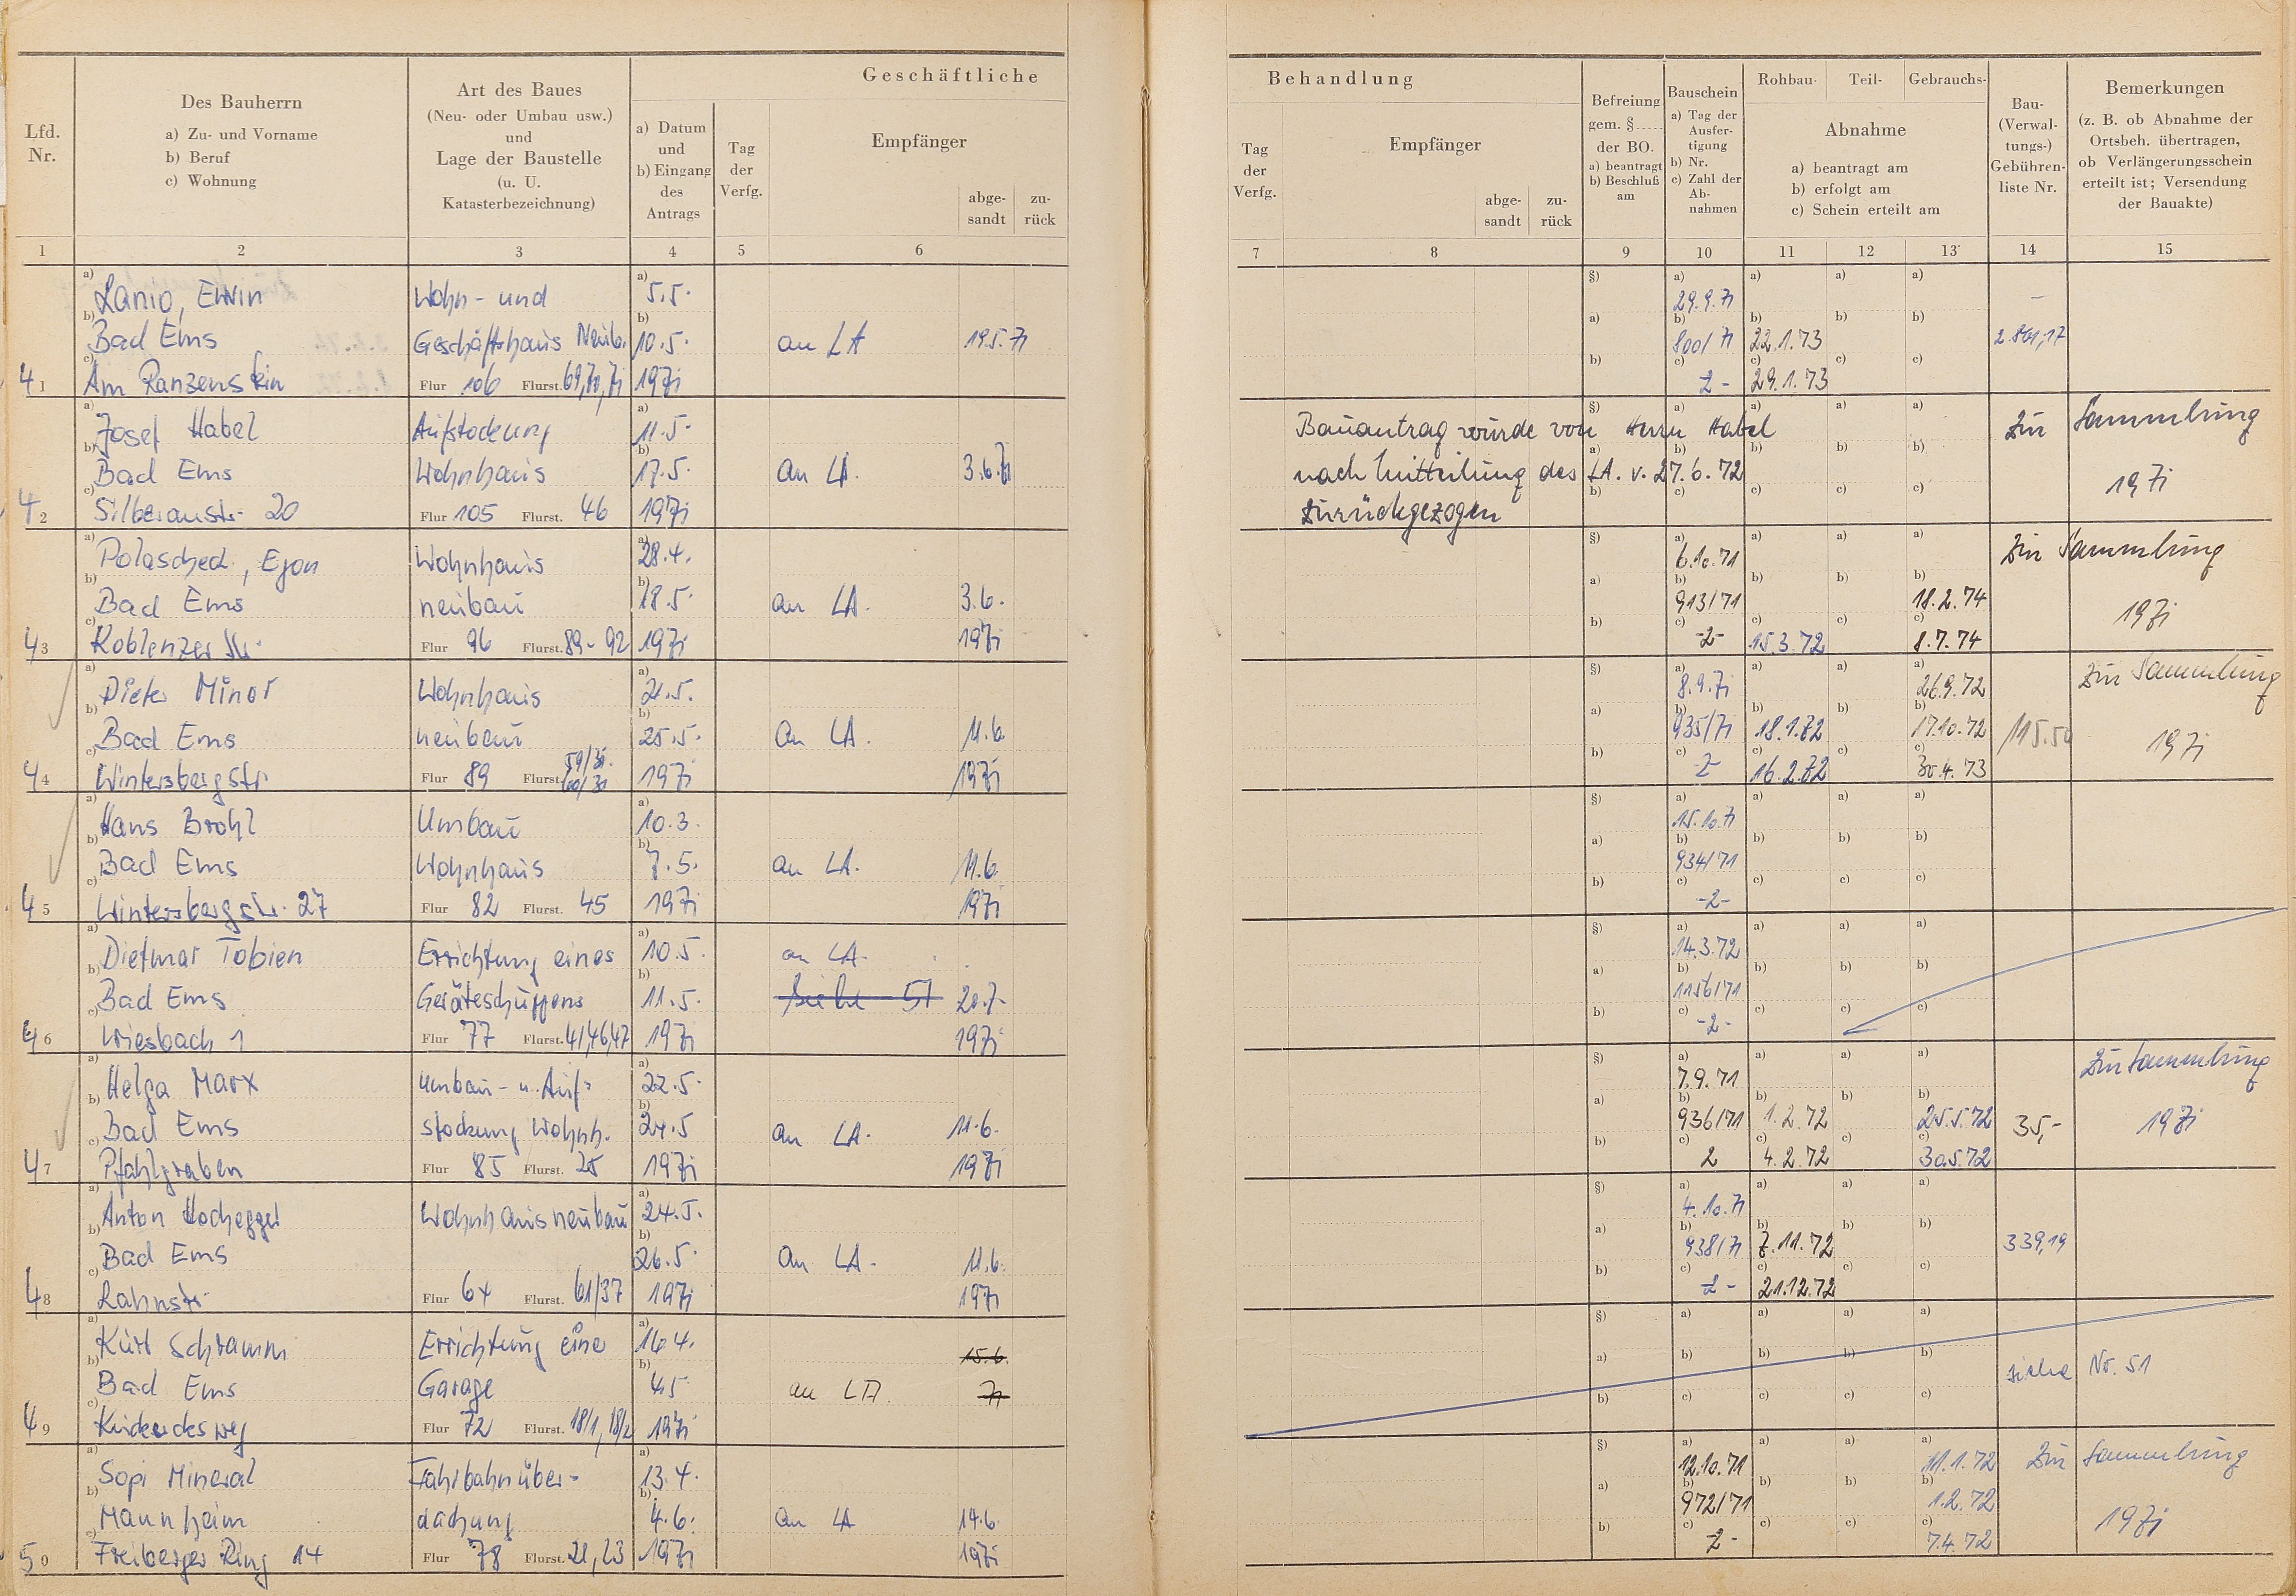 Geschäftliche
Lfd. Nr.
Des Bauherrn
a) Zu- und Vorname
b) Beruf
c) Wohnung
Art des Baues
(Neu- oder Umbau usw.)
und
Lage der Baustelle
(u. U.
Katasterbezeichnung)
a) Datum
und
b) Eingang
des
Antrags
Tag
der
Verfg.
Empfänger
abge-
sandt
zu-
rück
1 2 3 4 5 6
a) Lanio, Erwin Wohn- und a) 5.5.
b) Bad Ems Geschäftshaus Neub. b) 10.5. an LA 19.5.71
41 c) Am Ranzenstein Flur 106 Flurst. 69,70,71 1971
a) Josef Habel Aufstockung a) 11.5.
b) Bad Ems Wohnhaus b) 17.5. an LA. 3.6.71
42 c) Silberaustr. 20 Flur 105 Flurst. 46 1971
a) Polascheck, Egon Wohnhaus a) 28.4.
b) Bad Ems neubau b) 18.5. an LA. 3.6.
43 c) Koblenzer Str. Flur 96 Flurst. 89-92 1971 1971
a) Dieter Minor Wohnhaus a) 21.5.
b) Bad Ems neubau b) 25.5. an LA. 11.6.
44 c) Wintersbergstr. Flur 89 Flurst. 1971 1971
a) Hans Brohl Umbau a) 10.3.
b) Bad Ems Wohnhaus b) 7.5. an LA. 11.6.
45 c) Wintersbergstr. 27 Flur 82 Flurst. 45 1971 1971
a) Dietmar Tobien Errichtung eines a) 10.5. an LA.
b) Bad Ems Geräteschuppens b) 11.5. siehe 51 20.7.
46 c) Wiesbach 1 Flur 77 Flurst. 41,46,47 1971 1971
a) Helga Marx Umbau- u. Auf- a) 22.5.
b) Bad Ems stockung Wohnh. b) 24.5 an LA. 11.6.
47 c) Pfahlgraben Flur 85 Flurst. 25 1971 1971
a) Anton Hochegger Wohnhausneubau a) 24.5.
b) Bad Ems b) 26.5. an LA. 11.6.
48 c) Lahnstr. Flur 64 Flurst. 61/37 1971 1971
a) Kurt Schramm Errichtung eine a) 16.4. 15.6.
b) Bad Ems Garage b) 4.5 an LA. 71
49 c) Flur 72 Flurst. 18/1, 18/2 1971
a) Sopi Mineral Fahrbahnüber- a) 13.4.
b) Mannheim dachung b) 4.6. an LA 14.6.
50 c) Freiberger Ring 14 Flur 78 Flurst. 21, 23 1971 1971
Behandlung
Tag
der
Verfg.
Empfänger
abge-
sandt
zu-
rück
Befreiung
gem. §
der BO.
a) beantragt
b) Beschluß
am
Bauschein
a) Tag der
Ausfer-
tigung
b) Nr.
c) Zahl der
Ab-
nahmen
Rohbau- Teil- Gebrauchs-
Abnahme
a) beantragt am
b) erfolgt am
c) Schein erteilt am
Bau-
(Verwal-
tungs-)
Gebühren-
liste Nr.
Bemerkungen
(z. B. ob Abnahme der
Ortsbeh. übertragen,
ob Verlängerungsschein
erteilt ist; Versendung
der Bauakte)
7 8 9 10 11 12 13 14 15
§) a) 29.9.71 a) a) a) –
a) b) 800/71 b) 22.1.73 b) b)
b) c) 2- c) 29.1.73 c) c)
Bauantrag wurde von Herrn Habel §) a) a) a) a) zur Sammlung
nach Mitteilung des LA. v. 27.6.72 a) b) b) b) b) 1971
zurückgezogen b) c) c) c) c)
§) a) 6.10.71 a) a) a) zur Sammlung
a) b) 913/71 b) b) b) 18.2.74 1971
b) c) -2- c) 15.3.72 c) c) 8.7.74
§) a) 8.9.71 a) a) a) 26.9.72 zur Sammlung
a) b) 935/71 b) 18.1.72 b) b) 17.10.72 115.50 1971
b) c) 2- c) 16.2.72 c) c) 30.4.73
§) a) 15.10.71 a) a) a)
a) b) 934/71 b) b) b)
b) c) -2- c) c) c)
§) a) 14.3.72 a) a) a)
a) b) 1156/71 b) b) b)
b) c) -2- c) c) c)
§) a) 7.9.71 a) a) a) zur Sammlung
a) b) 936/71 b) 1.2.72 b) b) 25.5.72 35,- 1971
b) c) 2 c) 4.2.72 c) c) 30.5.72
§) a) 4.10.71 a) a) a)
a) b) 938/71 b) 7.11.72 b) b) 339,19
b) c) -2- c) 21.12.72 c) c)
§) a) a) a) a)
a) b) b) b) b) siehe Nr. 51
b) c) c) c) c)
§) a) 12.10.71 a) a) a) 11.1.72 zur Sammlung
a) b) 972/71 b) b) b) 1.2.72 1971
b) c) 2- c) c) c) 7.4.72